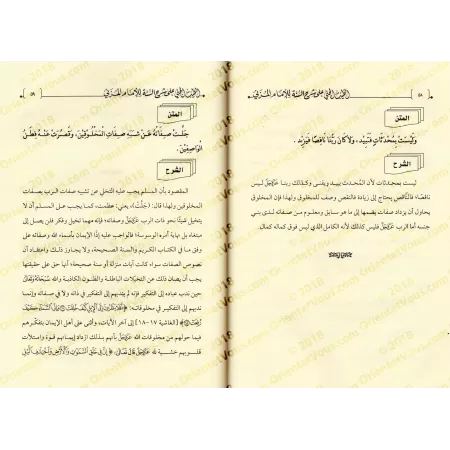 ٥٨
التعليق الجلي على شرح السنة للإمام المزني
المتن
وليست بمحدثات فتبيد، ولا كان ربنا ناقصا فيزيد.
الشرح
ليست بمحدثات لأن المحدث يبيد ويفنى وكذلك ربنا عزوجل ليس
ناقصا فالناقص يحتاج إلى زيادة فالنقص وصف للمخلوق ولهذا فإن المخلوق
يحاول أن يزداد صفات يضمها إلى ما هو سابق ومعلوم من صفاته لدى بني
جنسه أما الرب عزوجل فليس كذلك لأنه الكامل الذي ليس فوق كماله كمال.
٥٩
شرح السنة للإمام المزني
المتن
جلت صفاته عن شبه صفات المخلوقين، وقصرت عنه فطن
الواصفين.
الشرح
المقصود بأن المسلم يجب عليه التخلي عن تشبيه صفات الرب بصفات
المخلوقين ولهذا قال: (جلت)، يعني: عظمت. كما يجب على المسلم أن لا
يتخيل شيئا نحو ذات الرب عزوجل وصفاته؛ فإنه مهما تخيل وفكر فلن يصل إلى
مبتغاه بل نهاية أمره الوسوسة! فالواجب عليه إذا الإيمان بأسماء الله وصفاته على
وفق ما في الكتاب الكريم والسنة الصحيحة، ولا يجاوز ذلك واعتقاد أن
نصوص الصفات سواء كانت آيات منزلة أو سنة صحيحة؛ أنها حق على حقيقتها
يجب أن يصان ذلك عن التخيلات الباطلة والظنون الكاذبة والله سبحانه وتعالى
حين ندب عباده إلى التفكير فإنه لم يندبهم إلى التفكير في ذاته ولا في صفاته وإنما
ندبهم إلى التفكير في مخلوقاته: ﴿أفلا ينظرون إلى الإبل كيف خلقت ۝ وإلى السماء كيف
رفعت﴾ [الغاشية: ١٧-١٨] إلى آخر الآيات، وأثنى على أهل الإيمان بتفكرهم
فيما حولهم من مخلوقات الله عزوجل بأنهم بذلك ازداد إيمانهم قوة وامتلأت
قلوبهم خشية لله عزوجل قال تعالى: ﴿إن في خلق السموات والأرض واختلاف الليل